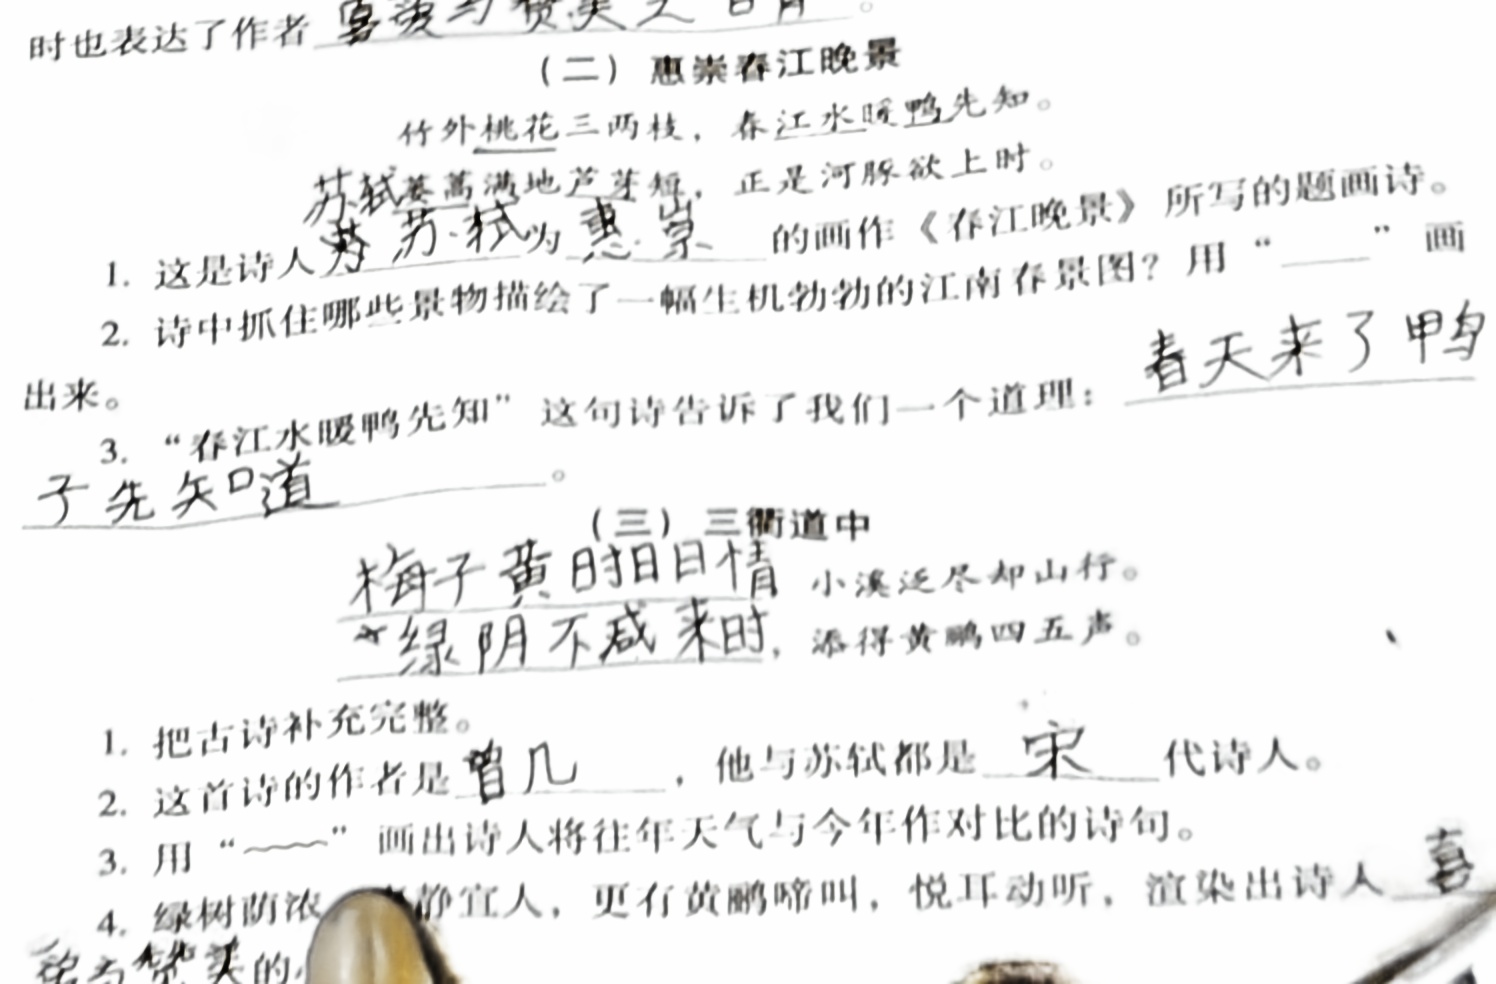 时也表达了作者喜爱与赞美之
（二）惠崇春江晚景
竹外桃花三两枝，春江水暖鸭先知。
苏轼蒌蒿满地芦芽短，正是河豚欲上时。
1. 这是诗人苏轼为惠崇的画作《春江晚景》所写的题画诗。
2. 诗中抓住哪些景物描绘了一幅生机勃勃的江南春景图？用“____”画
出来。
3. “春江水暖鸭先知”这句诗告诉了我们一个道理：春天来了鸭
子先知道。
（三）三衢道中
梅子黄时日日情 小溪泛尽却山行。
绿阴不咸来时，添得黄鹂四五声。
1. 把古诗补充完整。
2. 这首诗的作者是曾几，他与苏轼都是宋代诗人。
3. 用“﹏﹏”画出诗人将往年天气与今年作对比的诗句。
4. 绿树荫浓 静宜人，更有黄鹂啼叫，悦耳动听，渲染出诗人喜
与赞美的